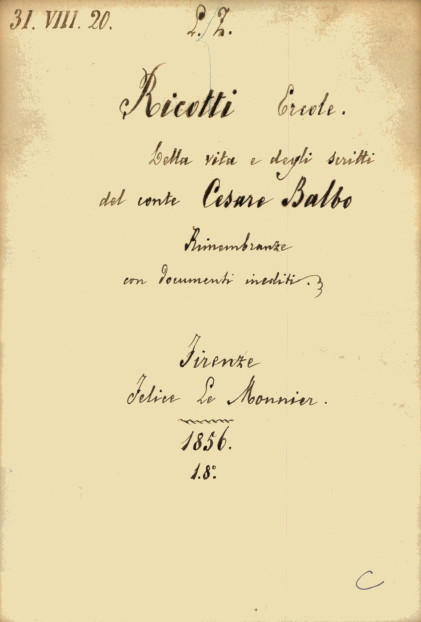 31. VIII. 20.
L. Z.
Ricotti Ercole.
Della vita e degli scritti
del conte Cesare Balbo
Rimembranze
con documenti inediti.
Firenze
Felice Le Monnier.
1856.
1. 8º.
C